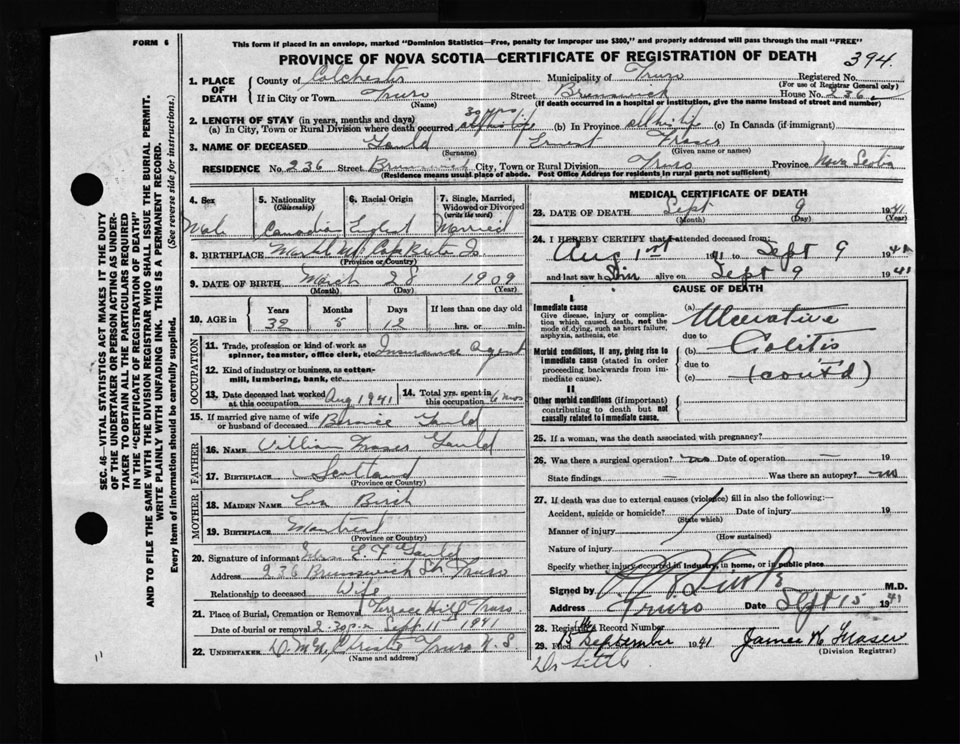 FORM 6
This form if placed in an envelope, marked "Dominion Statistics—Free, penalty for improper use $300," and properly addressed will pass through the mail "FREE"
PROVINCE OF NOVA SCOTIA—CERTIFICATE OF REGISTRATION OF DEATH 394.
1. PLACE OF DEATH County of Colchester Municipality of Truro Registered No.
(For use of Registrar General only)
If in City or Town Truro Street Brunswick House No. 236
(Name) (If death occurred in a hospital or institution, give the name instead of street and number)
2. LENGTH OF STAY (in years, months and days)
(a) In City, Town or Rural Division where death occurred (b) In Province all his life (c) In Canada (if immigrant)
3. NAME OF DECEASED Gauld Ernest Fraser
(Surname) (Given name or names)
RESIDENCE No. 236 Street Brunswick City, Town or Rural Division Truro Province Nova Scotia
(Residence means usual place of abode. Post Office Address for residents in rural parts not sufficient)
4. Sex 5. Nationality (Citizenship) 6. Racial Origin 7. Single, Married, Widowed or Divorced (write the word)
Male Canadian English Married
8. BIRTHPLACE
(Province or Country)
9. DATE OF BIRTH March 28 1909
(Month) (Day) (Year)
10. AGE in Years Months Days If less than one day old
32 5 12 hrs. or min.
OCCUPATION
11. Trade, profession or kind of work as spinner, teamster, office clerk, etc. Insurance Agent
12. Kind of industry or business, as cotten-mill, lumbering, bank, etc.
13. Date deceased last worked at this occupation Aug 1941 14. Total yrs. spent in this occupation 6 mos
15. If married give name of wife or husband of deceased Bernice Gauld
FATHER
16. NAME William Fraser Gauld
17. BIRTHPLACE Scotland
(Province or Country)
MOTHER
18. MAIDEN NAME Eva Birch
19. BIRTHPLACE Montreal
(Province or Country)
20. Signature of informant E. F. Gauld
Address 236 Brunswick St. Truro
Relationship to deceased Wife
21. Place of Burial, Cremation or Removal Terrace Hill Truro.
Date of burial or removal 2.30 p.m Sept. 11 1941
22. UNDERTAKER Christie Truro N.S
(Name and address)
MEDICAL CERTIFICATE OF DEATH
23. DATE OF DEATH Sept 9 1941
(Month) (Day) (Year)
24. I HEREBY CERTIFY that I attended deceased from:
Aug 1st 1941 to Sept 9 1941
and last saw him alive on Sept 9 1941
CAUSE OF DEATH
I
Immediate cause
Give disease, injury or complication which caused death, not the mode of dying, such as heart failure, asphyxia, asthenia, etc.
(a) Ulcerative
due to
Morbid conditions, if any, giving rise to immediate cause (stated in order proceeding backwards from immediate cause).
(b) Colitis
due to
(c) (cont'd)
II
Other morbid conditions (if important) contributing to death but not causally related to immediate cause.
25. If a woman, was the death associated with pregnancy?
26. Was there a surgical operation? no Date of operation — 19
State findings — Was there an autopsy? no
27. If death was due to external causes (violence) fill in also the following:—
Accident, suicide or homicide? Date of injury 19
(State which)
Manner of injury
(How sustained)
Nature of injury
Specify whether injury occurred in industry, in home, or in public place
Signed by M.D.
Address Truro Date Sept 15 1941
28. Registrar's Record Number
29. Filed 15 September 1941 James W Fraser
(Division Registrar)
Dr Little
SEC. 46—VITAL STATISTICS ACT MAKES IT THE DUTY
OF THE UNDERTAKER OR PERSON ACTING AS UNDERTAKER TO OBTAIN ALL THE PARTICULARS REQUIRED
IN THE "CERTIFICATE OF REGISTRATION OF DEATH"
AND TO FILE THE SAME WITH THE DIVISION REGISTRAR WHO SHALL ISSUE THE BURIAL PERMIT.
WRITE PLAINLY WITH UNFADING INK. THIS IS A PERMANENT RECORD.
Every item of information should be carefully supplied. (See reverse side for instructions.)